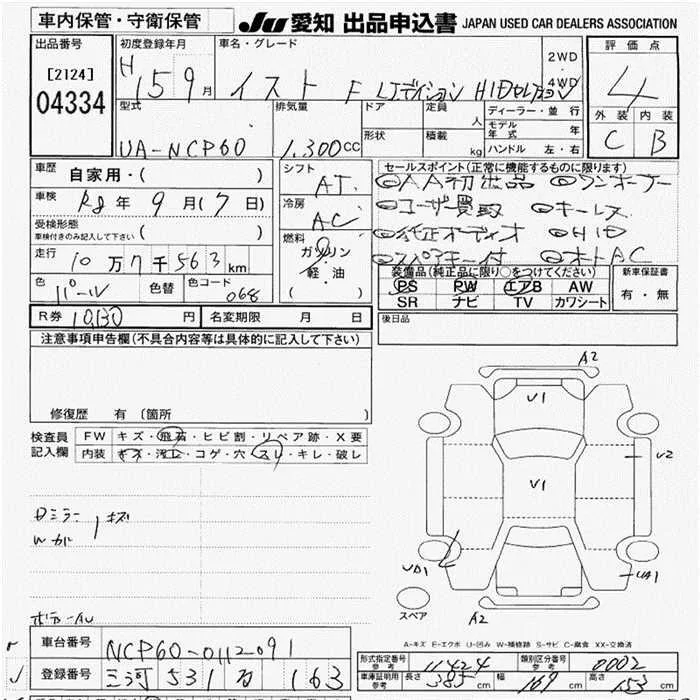 車内保管・守衛保管
JU 愛知 出品申込書 JAPAN USED CAR DEALERS ASSOCIATION
出品番号 初度登録年月 車名・グレード 評価点
[2124] H 15 9月 イスト F Lエディション HIDセレクション 2WD・4WD 4
04334
型式 排気量 ドア 定員 人 ディーラー・並行 外装 内装
UA-NCP60 1,300cc 形状 積載 kg モデル年式 年 C B
ハンドル 左・右
車歴 自家用・( ) シフト AT セールスポイント(正常に機能するものに限ります)
車検 R8年 9月(7日) 冷房 AC ◎AA初出品 ◎ワンオーナー
受検形態 ( ) ◎ユーザー買取 ◎キーレス
車検付きのみ記入して下さい 燃料 ◎純正オーディオ ◎HID
走行 10万7千563km ガソリン ◎スペアキー付 ◎オートAC
軽・油 ( )
色 パール 色替 色コード 068 装備品(純正品に限り○をつけてください) 新車保証書
PS PW エアB AW 有・無
SR ナビ TV カワシート
R券 10130円 名変期限 月 日 後日品
注意事項申告欄(不具合内容等は具体的に記入して下さい)
修復歴 有 [箇所 ]
検査員記入欄 FW キズ・飛石・ヒビ割・リペア跡・X要
内装 キズ・汚レ・コゲ・穴・スレ・キレ・破レ
A2
U1
U2
U1
Dミラー キズ
Wカバ
UA1
UA1
スペア A2
ボデーAU
A-キズ E-エクボ U-凹み W-補修跡 S-サビ C-腐食 XX-交換済
車台番号 NCP60-0112091
登録番号 三河 531 163
形式指定番号 参考 11424 類別区分番号 参考 0002
車庫証明用 参考 長さ 385cm 幅 169cm 高さ 153cm